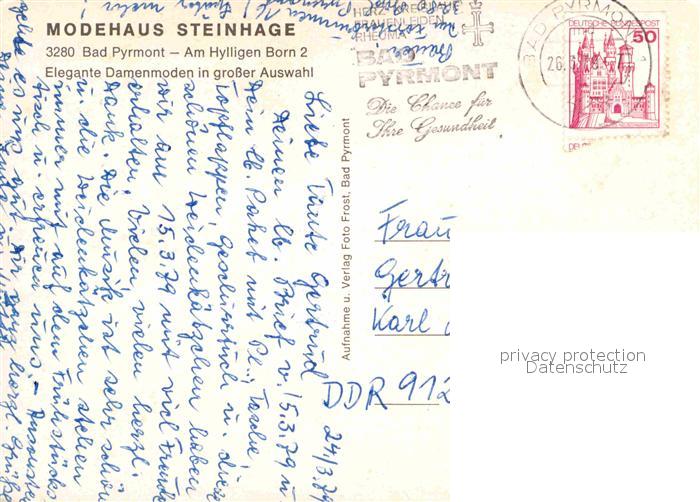 MODEHAUS STEINHAGE
3280 Bad Pyrmont – Am Hylligen Born 2
Elegante Damenmoden in großer Auswahl
FRAUENLEIDEN
RHEUMA
BAD
PYRMONT
Die Chance für
Ihre Gesundheit
BAD PYRMONT 1
DEUTSCHE BUNDESPOST
50
Aufnahme u. Verlag Foto Frost, Bad Pyrmont
24/3.79
Liebe Tante Gertrud
Deinen lb. Brief v. 15.3.79 u
Dein lb. Paket mit Pl., Tasche,
Topflappen, Geschirrtuch u. diese
schönen Weidenkätzchen haben
wir am 15.3.79 mit viel Freude
erhalten. Vielen, vielen herzl.
Dank. Die Musik ist sehr schön
u. die Weidenkätzchen stehen
immer mit auf dem Frühstücks
tisch u. erfreuen uns. – Ansonsten
geht es uns gut.
Frau
Gertr
Karl
DDR 912
privacy protection
Datenschutz